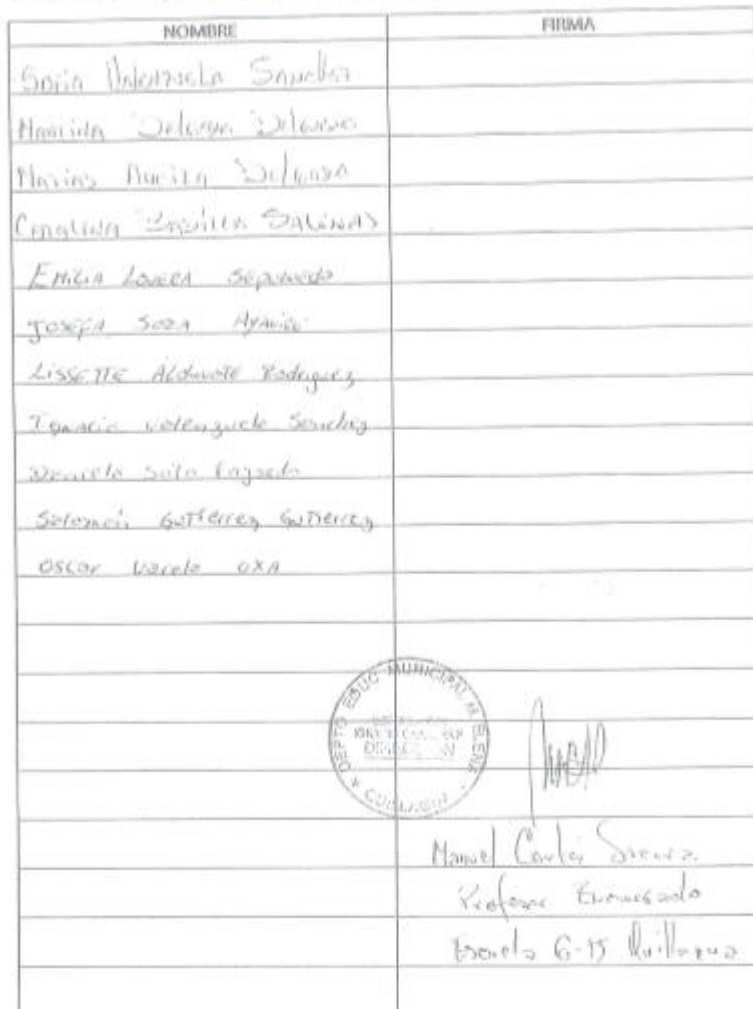 NOMBRE FIRMA
Sofia Valenzuela Sanchez
Delgado Delgado
Matias Delgado
Catalina Salinas
Emilia Lovera Sepulveda
Josefa Soza
Lissette Aldunate Rodriguez
Ignacio Valenzuela Sanchez
Soto
Salomon Gutierrez Gutierrez
Oscar Varela OXA
DEPTO EDUC MUNICIPAL M. ELENA
Manuel Cortés
Profesor Encargado
Escuela G-15 Quillagua